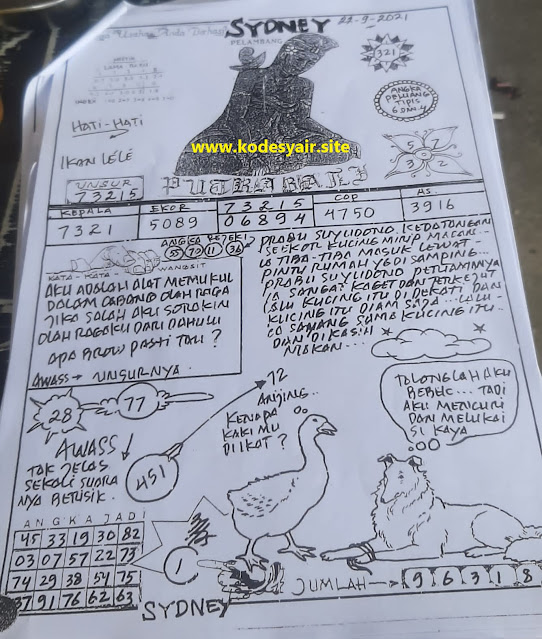 SYDNEY
22-9-2021
PELAMBANG
321
ANGKA
PELUANG
TIPIS
6 DAN 4
HATI-HATI
IKAN LELE
www.kodesyair.site
5 7
3 2
UNSUR
73215
PUTRA BALI
KEPALA
7321
EKOR
5089
73215
06894
COP
4750
AS.
3916
KATA-KATA WANGSIT
AKU ADALAH ALAT MEMUKUL
DALAM CABANG OLAH RAGA
JIKA SALAH AKU SOROKIN
OLAH RAGAKU DARI DAHULU
APA BROW PASTI TAU?
AWASS → UNSUR-NYA.
ANGKA REJEKI
55 70 11 36
PRABU SUYUDONO. KEDATANGAN
SEEKOR KUCING MIRIP MACAN..
IA TIBA-TIBA MASUK LEWAT-
PINTU RUMAH YG DI SAMPING...
PRABU SUYUDONO PERTAMANYA
IA SANGAT KAGET DAN TERKEJUT
LALU KUCING ITU DI DEKATI DAN
KUCING ITU DIAM SAJA... LALU-
IA SAYANG SAMA KUCING ITU..
DAN DI KASIH
MAKAN...
28
77
72
451
AWASS
TAK JELAS
SEKALI SUARA
NYA BERISIK.
ANJING..
KENAPA
KAKI MU
DI IKAT?
TOLONGLAH AKU
BEBEK... TADI
AKU MENCURI
DAN MELUKAI
SI KAYA
ANGKA JADI
45 33 19 30 82
03 07 57 22 73
74 29 38 54 75
37 91 76 62 63
1
JUMLAH → 9 6 3 1 8
SYDNEY